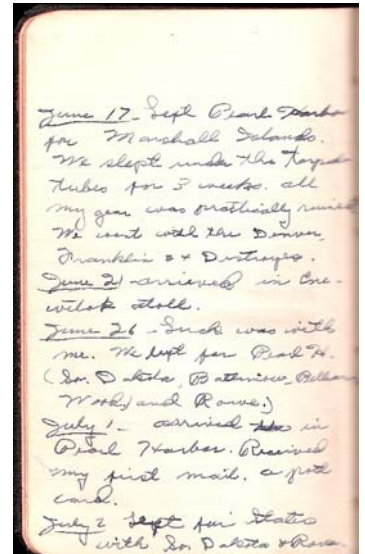 June 17 - Left Pearl Harbor
for Marshall Islands.
We slept under the torpedo
tubes for 3 weeks. all
my gear was practically ruined
We went with the Denver,
Franklin & 4 Destroyes.
June 21 - arrieved in Ene-
witok Atoll.
June 26 - Luck was with
me. We left for Pearl H.
(So. Dakota, Baltimore, Belleau
Wood, and Rowe.)
July 1 - arrived in
Pearl Harbor. Received
my first mail. a post
card.
July 2 Left for States
with So. Dakota & Rowe.